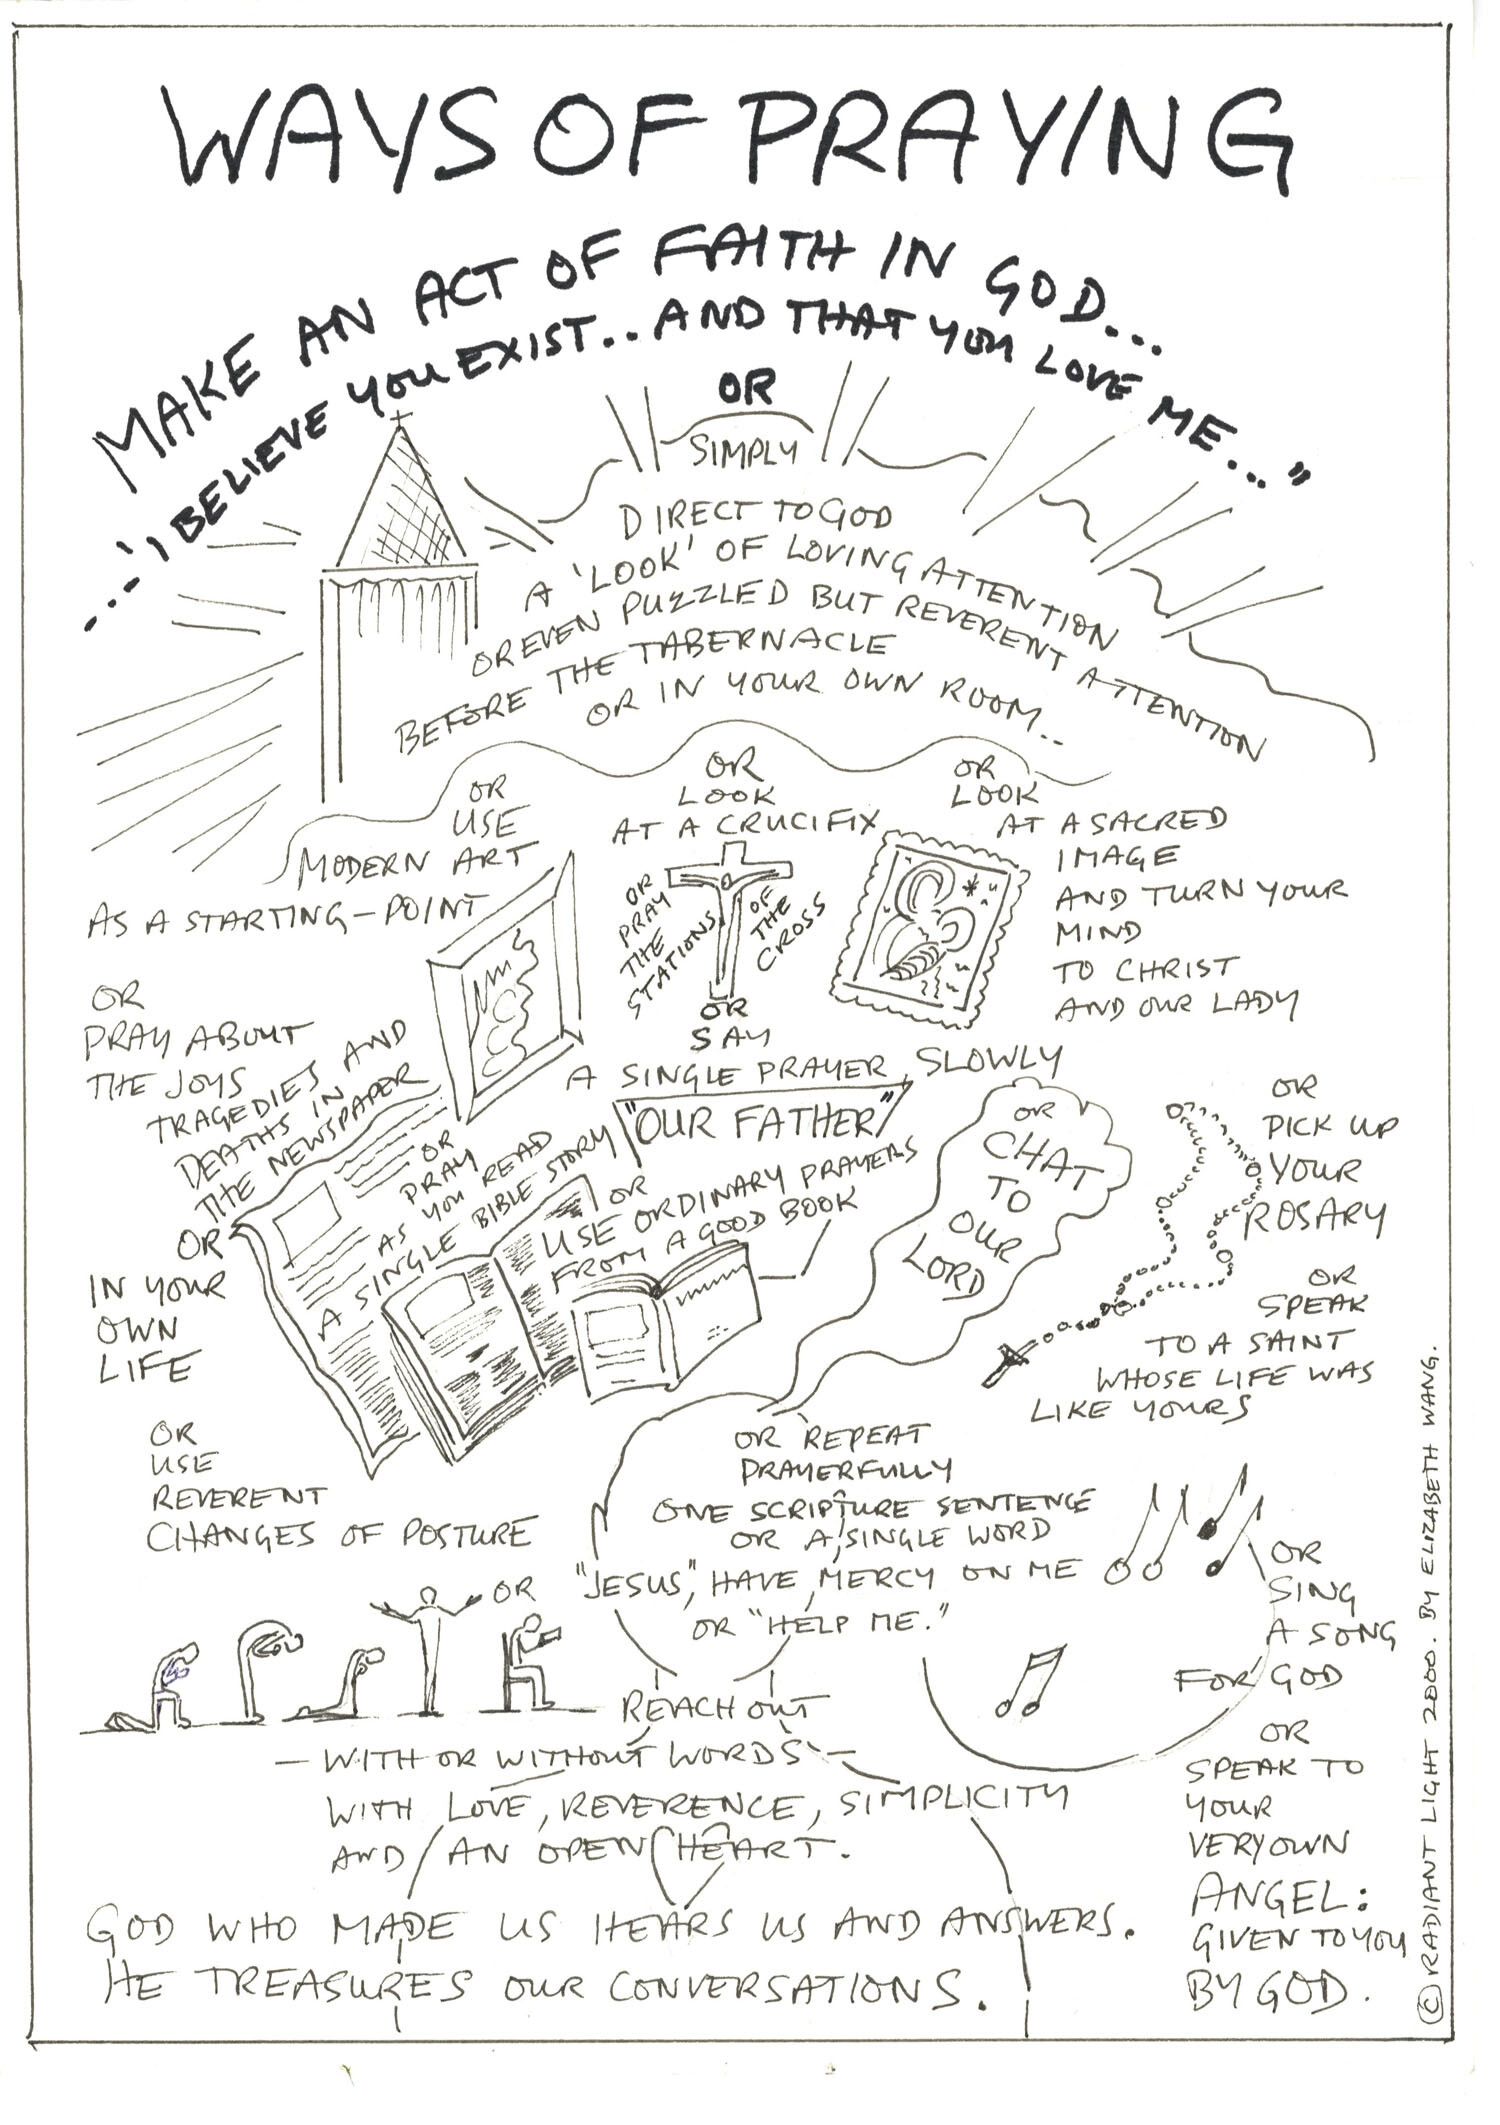 WAYS OF PRAYING
MAKE AN ACT OF FAITH IN GOD...
...'I BELIEVE YOU EXIST.. AND THAT YOU LOVE ME..."
OR
SIMPLY
DIRECT TO GOD
A 'LOOK' OF LOVING ATTENTION
OR EVEN PUZZLED BUT REVERENT ATTENTION
BEFORE THE TABERNACLE
OR IN YOUR OWN ROOM..
OR
USE
MODERN ART
AS A STARTING-POINT
OR
LOOK
AT A CRUCIFIX
OR
PRAY
THE
STATIONS
OF
THE
CROSS
OR
LOOK
AT A SACRED
IMAGE
AND TURN YOUR
MIND
TO CHRIST
AND OUR LADY
OR
SAY
A SINGLE PRAYER, SLOWLY
"OUR FATHER"
OR
PRAY ABOUT
THE JOYS
TRAGEDIES AND
DEATHS IN
THE NEWSPAPER
OR
IN YOUR
OWN
LIFE
OR
PRAY
AS YOU READ
A SINGLE BIBLE STORY
OR
USE ORDINARY PRAYERS
FROM A GOOD BOOK
OR
CHAT
TO
OUR
LORD
OR
PICK UP
YOUR
ROSARY
OR
SPEAK
TO A SAINT
WHOSE LIFE WAS
LIKE YOURS
OR
USE
REVERENT
CHANGES OF POSTURE
OR
OR REPEAT
PRAYERFULLY
ONE SCRIPTURE SENTENCE
OR A SINGLE WORD
"JESUS", HAVE MERCY ON ME
OR "HELP ME."
OR
SING
A SONG
FOR GOD
OR
SPEAK TO
YOUR
VERY OWN
ANGEL:
GIVEN TO YOU
BY GOD.
REACH OUT
- WITH OR WITHOUT WORDS -
WITH LOVE, REVERENCE, SIMPLICITY
AND AN OPEN HEART.
GOD WHO MADE US HEARS US AND ANSWERS.
HE TREASURES OUR CONVERSATIONS.
© RADIANT LIGHT 2000. BY ELIZABETH WANG.